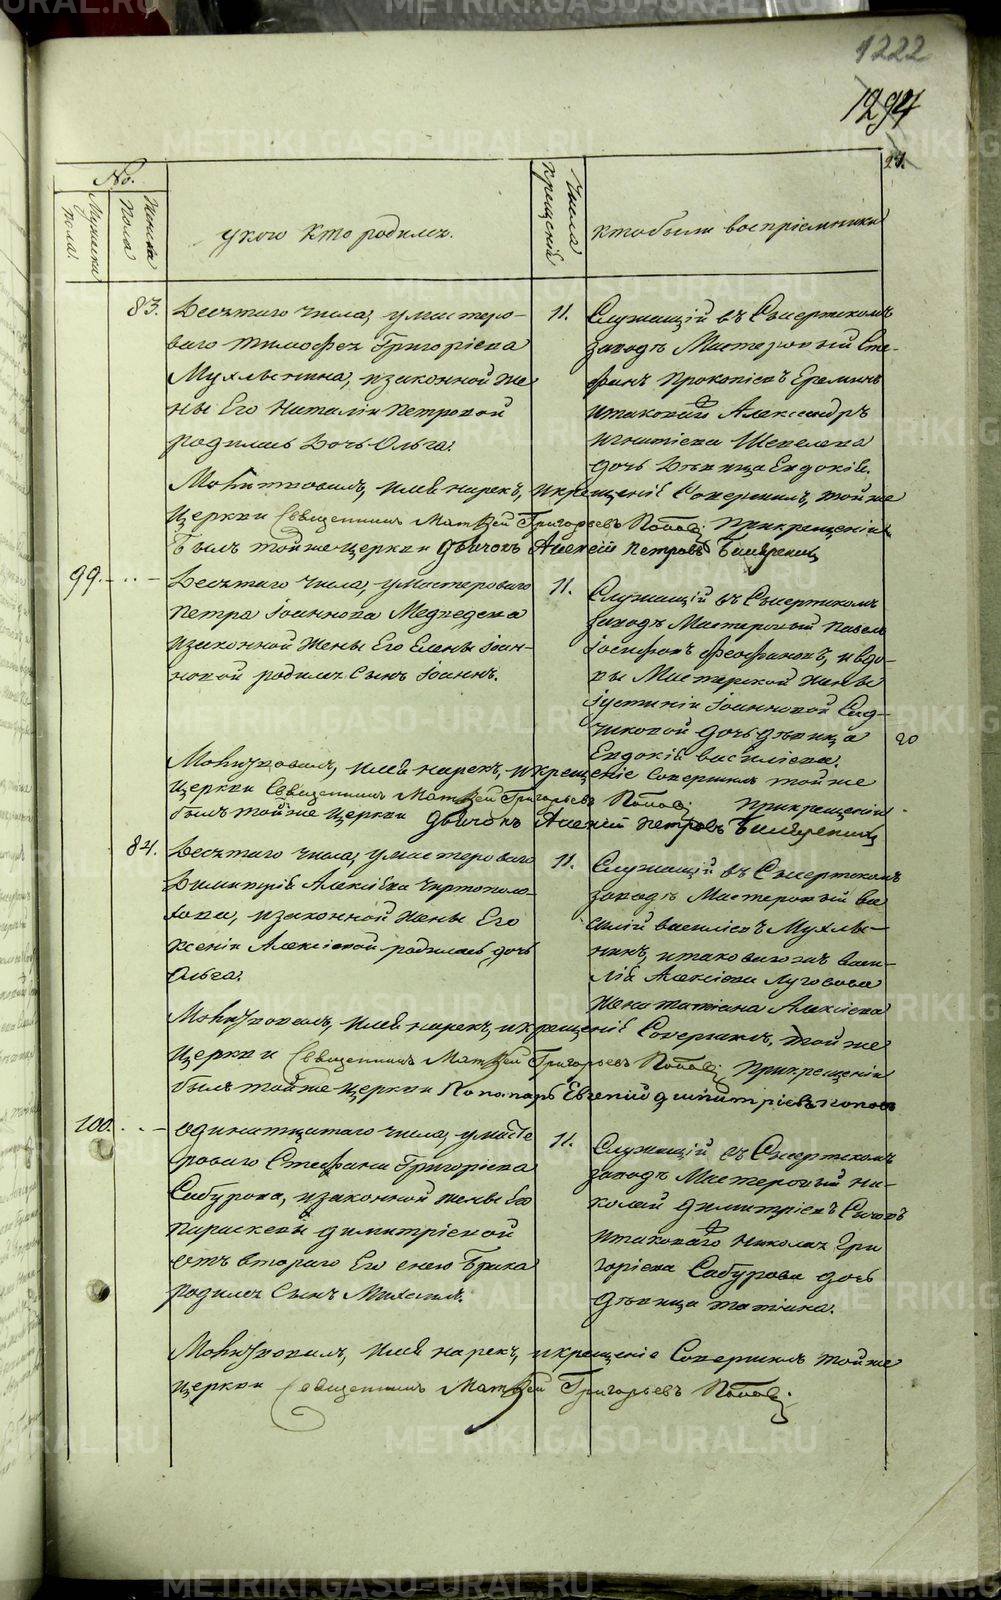 METRIKI.GASO-URAL.RU
1222
1294
27.
№.
Мужеска пола.
Женска пола
У кого кто родился.
Числа крещенiй
Кто были воспрiемники
83.
Десятаго числа, у мастеро-
ваго Тимофея Григорiева
Мухлынина, и законной же
ны Его Наталiи Петровой
родилась дочь Ольга.
11.
Служащiй въ Сысертскомъ
заводѣ Мастеровый Сте-
фанъ Прокопiевъ Ереминъ
и таковаго Александръ
Игнатiева Шепелева
дочь дѣвица Евдокiя.
Молитвовалъ, имя нарекъ, и крещенiе Совершилъ, той же
Церкви Священникъ Матѳей Григорьевъ Поповъ; При крещенiи
былъ той же церкви дьячокъ Алексiй Петровъ
99.
Десятаго числа, у мастероваго
Петра Iоаннова Медведева
и законной жены Его Елены Iоан-
новой родился Сынъ Iоаннъ.
11.
Служащiй въ Сысертскомъ
заводѣ Мастеровый Павелъ
Iосифовъ Феофановъ, и вдо-
вы Мастерской жены
Iустинiи Iоанновой Сад-
чиковой дочь дѣвица
Евдокiя Василiева.
20
Молитвовалъ, имя нарекъ, и крещенiе Совершилъ той же
Церкви Священникъ Матѳей Григорьевъ Поповъ; При крещенiи
былъ той же Церкви дьячокъ Алексiй Петровъ
84.
Десятаго числа, у мастероваго
Димитрiя Алексiева Чертополо-
хова, и законной жены Его
Ксенiи Алексiевой родилась дочь
Ольга.
11.
Служащiй въ Сысертскомъ
заводѣ Мастеровый Ва
силiй Василiевъ Мухлы-
нинъ, и таковагожъ Васи-
лiя Алексiева Луговова
жена Татiана Алексiева
Молитвовалъ, имя нарекъ, и крещенiе Совершилъ, той же
Церкви Священникъ Матѳей Григорьевъ Поповъ; При крещенiи
былъ той же церкви Понамарь Евгенiй Димитрiевъ Поповъ
100.
Одинатцатаго числа, у масте
роваго Стефана Григорiева
Сабурова, и законной жены Его
Параскевы Димитрiевой
отъ втораго Его съ нею брака
родился Сынъ Михаилъ.
11.
Служащiй въ Сысертскомъ
заводѣ Мастеровый Ни-
колай Димитрiевъ Сычовъ
и таковаго Николая Гри
горiева Сабурова дочь
дѣвица Татiана.
Молитвовалъ, имя нарекъ, и крещенiе Совершилъ той же
Церкви Священникъ Матѳей Григорьевъ Поповъ.